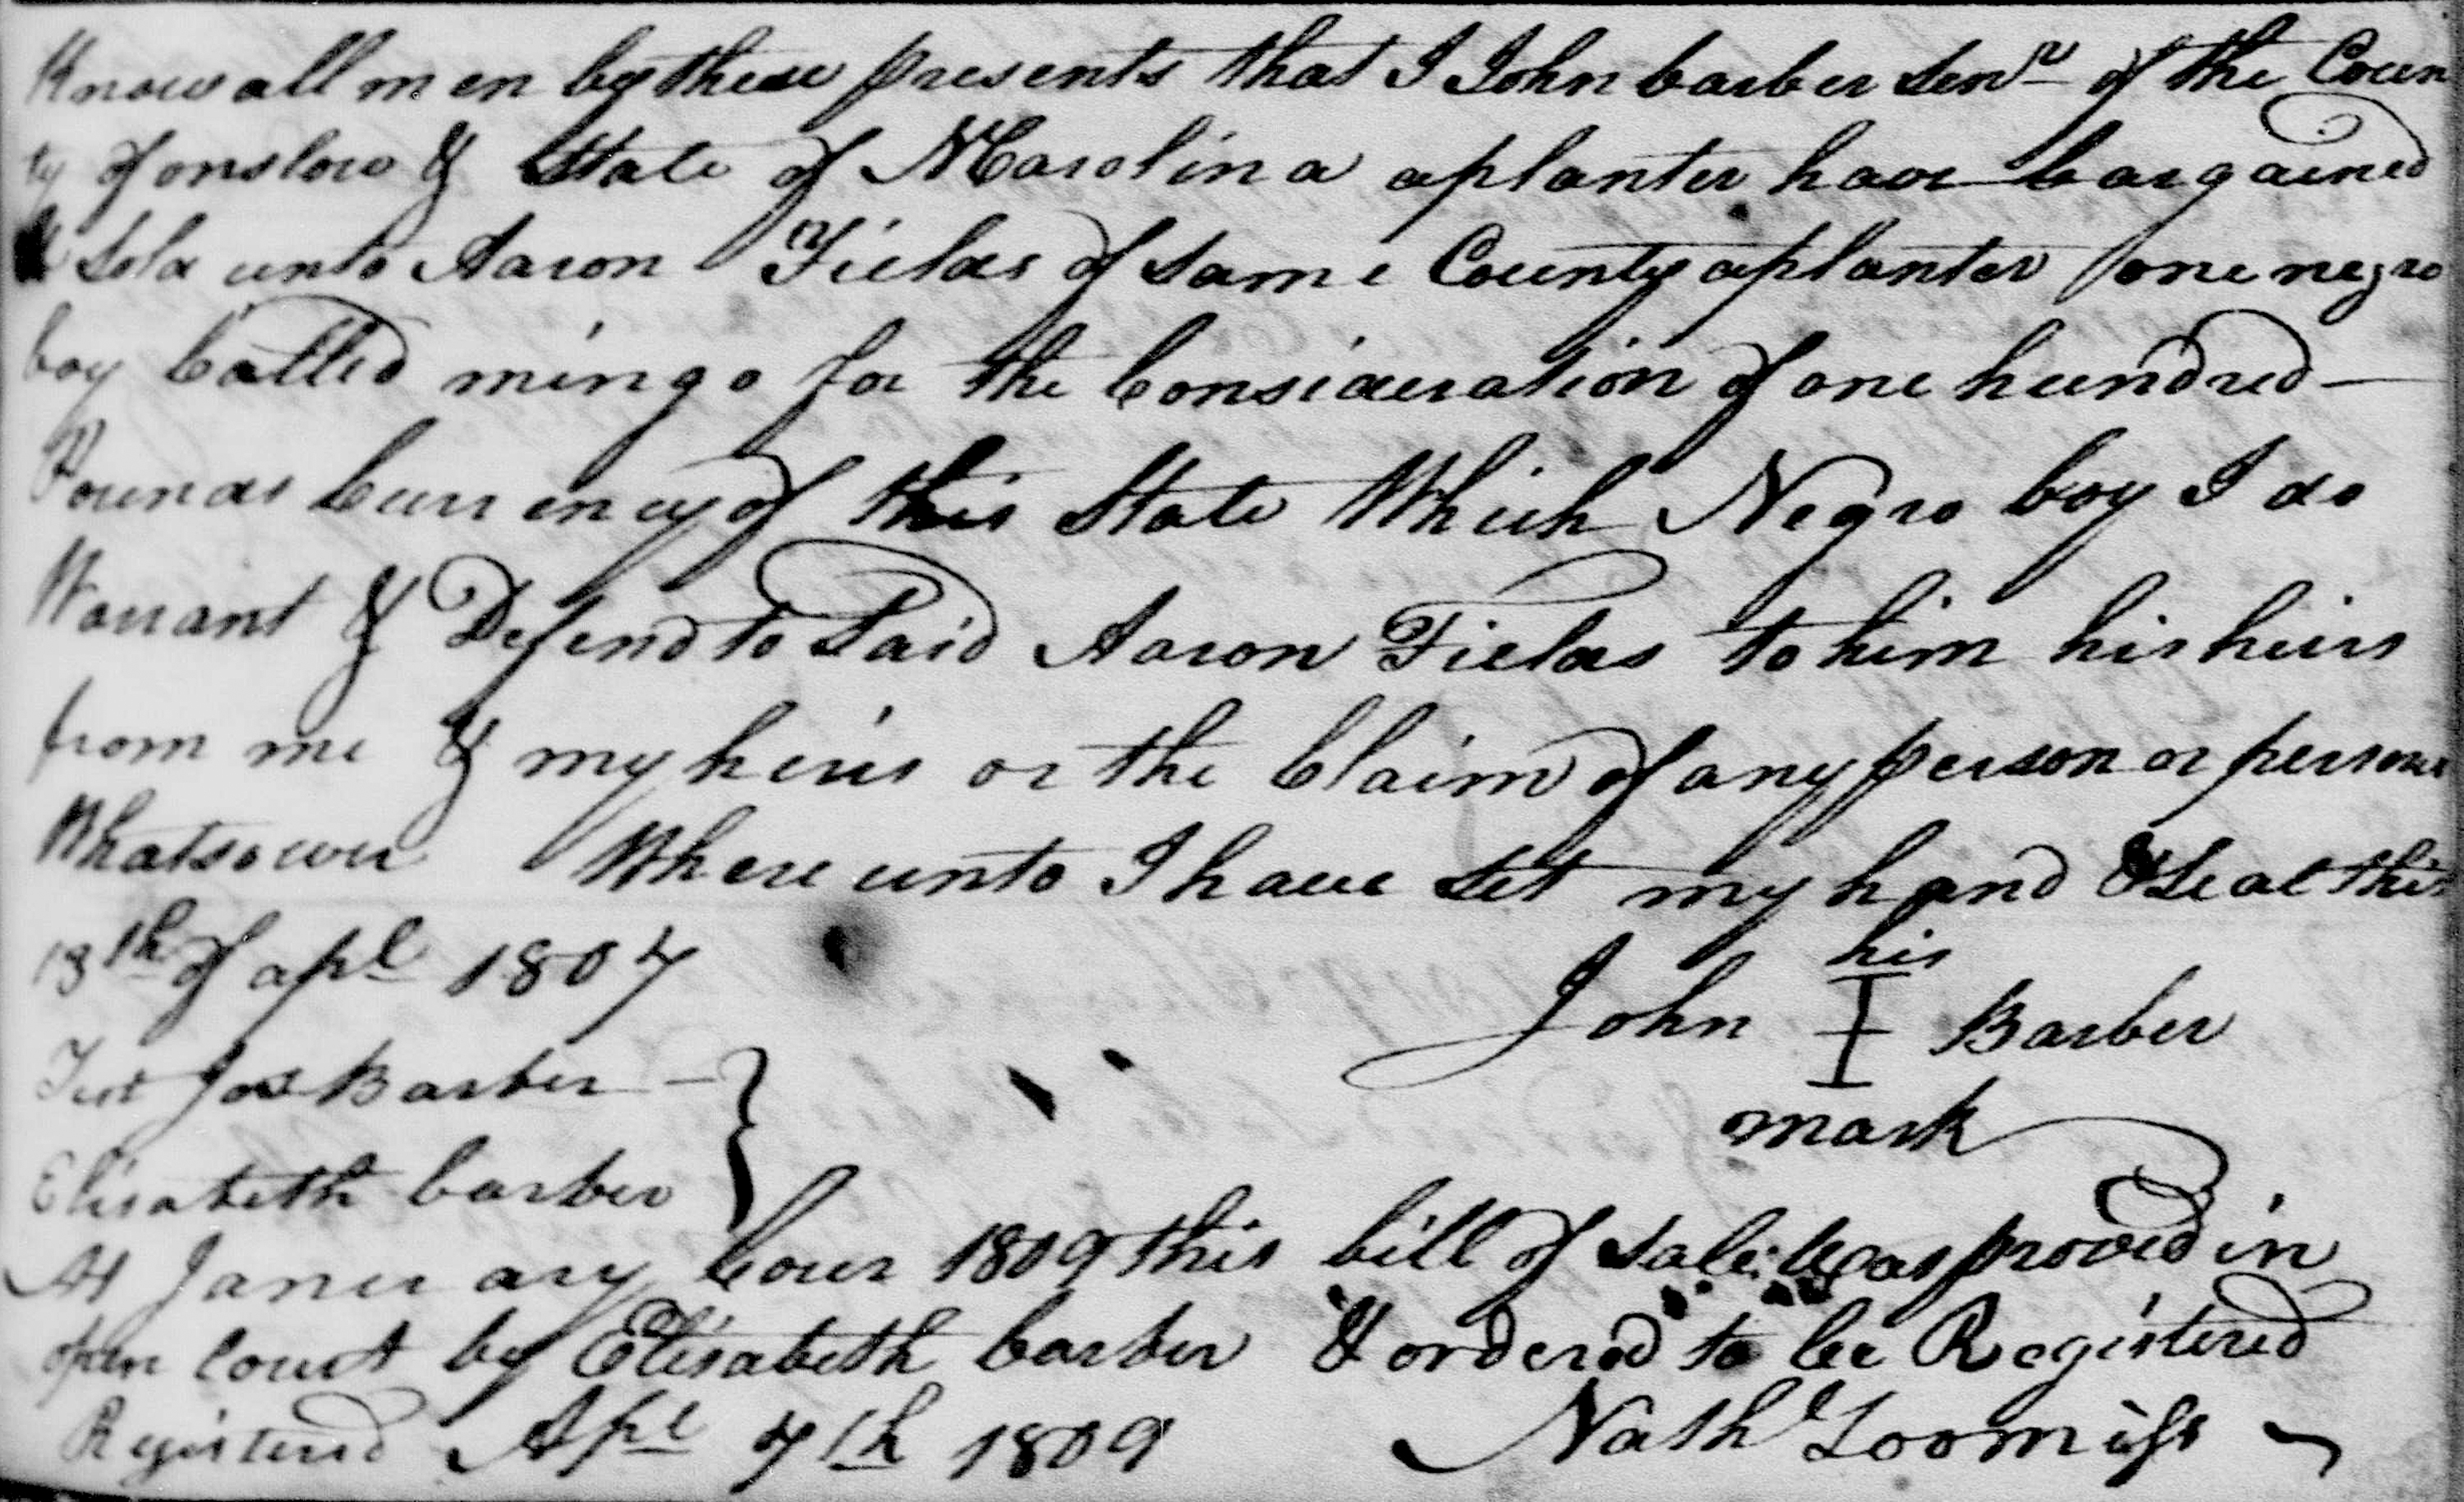 Know all men by these presents that I John barber Senr of the Coun
ty of onslow & State of NCarolina a planter have bargained
& Sold unto Aaron Fields of Same County a planter one negro
boy Called mingo for the Consideration of one hundred —
Pounds Currency of this State Which Negro boy I do
Warrant & Defend to Said Aaron Fields to him his heirs
from me & my heirs or the Claim of any person or persons
Whatsoever Where unto I have Set my hand & Seal this
13th of apl 1807
his
John I Barber
mark
Test Jos Barber —
Elisabeth barber
At Janerary Cour 1809 this bill of Sale Was proved in
open Court by Elisabeth barber & ordered to be Registered
Registered Apl 7th 1809 Nathl Loomiss